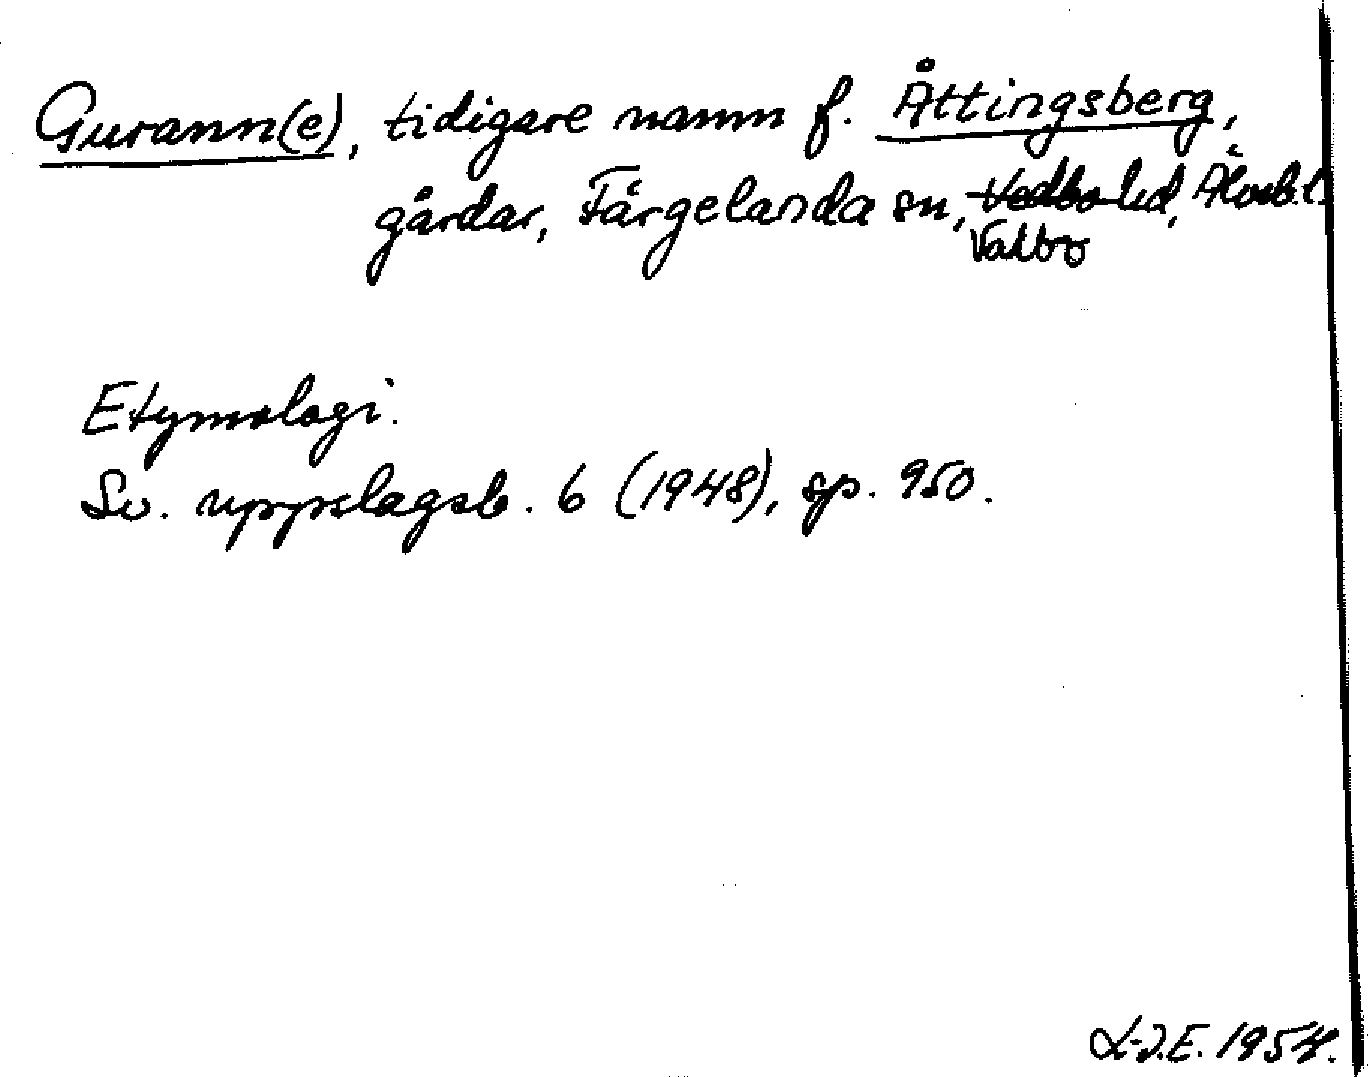 Gurann(e), tidigare namn f. Åttingsberg,
gårdar, Färgelanda sn, Vedbo hd, Älvsb.l.
Valbo
Etymologi.
Sv. uppslagsb. 6 (1948), sp. 950.
L-J.E. 1954.